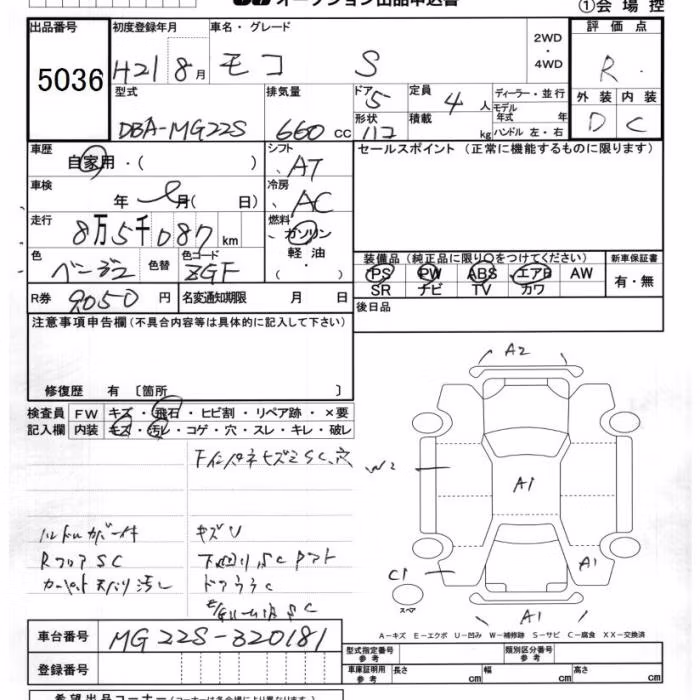 オークション出品申込書
①会場控
出品番号 初度登録年月 車名・グレード 2WD・4WD 評価点
5036 H21 8月 モコ S R
型式 排気量 ドア 定員 ディーラー・並行 外装 内装
DBA-MG22S 660cc 5 4人 モデル年式 年 D C
形状 積載 kg ハンドル 左・右
車歴 シフト セールスポイント(正常に機能するものに限ります)
自家用・( ) AT
車検 年 月( 日) 冷房 AC
走行 燃料
8万5千087km ガソリン
軽油
・( )
色 ベージュ 色替 色コード ZGF
装備品(純正品に限り○をつけてください) 新車保証書
PS PW ABS エアB AW 有・無
SR ナビ TV カワ
R券 9050円 名変通知期限 月 日 後日品
注意事項申告欄(不具合内容等は具体的に記入して下さい)
修復歴 有〔箇所 〕
検査員 FW キズ・飛石・ヒビ割・リペア跡・×要
記入欄 内装 キズ・汚レ・コゲ・穴・スレ・キレ・破レ
A2
W2
A1
A1
C1
スペア
A1
ハンドルカバー付 キズU
RフロアSC
A－キズ E－エクボ U－凹み W－補修跡 S－サビ C－腐食 XX－交換済
車台番号 MG22S-320181
登録番号
型式指定番号 参考 類別区分番号 参考
車庫証明用 参考 長さ cm 幅 cm 高さ cm
希望出品コーナー(コーナーは各会場により異なります)